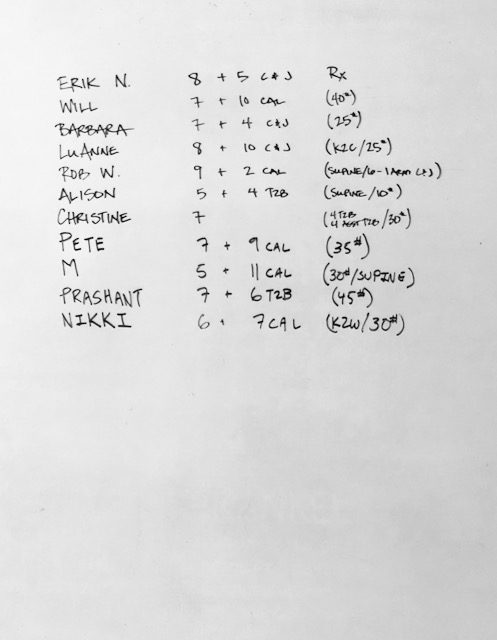 ERIK N. 8 + 5 C&J Rx
WILL 7 + 10 CAL (40#)
BARBARA 7 + 4 C&J (25#)
LUANNE 8 + 10 C&J (K2C/25#)
ROB W. 9 + 2 CAL (SUPINE/6-1 ARM C&J)
ALISON 5 + 4 T2B (SUPINE/10#)
CHRISTINE 7 (4 T2B
4 ASST T2B/30#)
PETE 7 + 9 CAL (35#)
M 5 + 11 CAL (30#/SUPINE)
PRASHANT 7 + 6 T2B (45#)
NIKKI 6 + 7 CAL (K2W/30#)